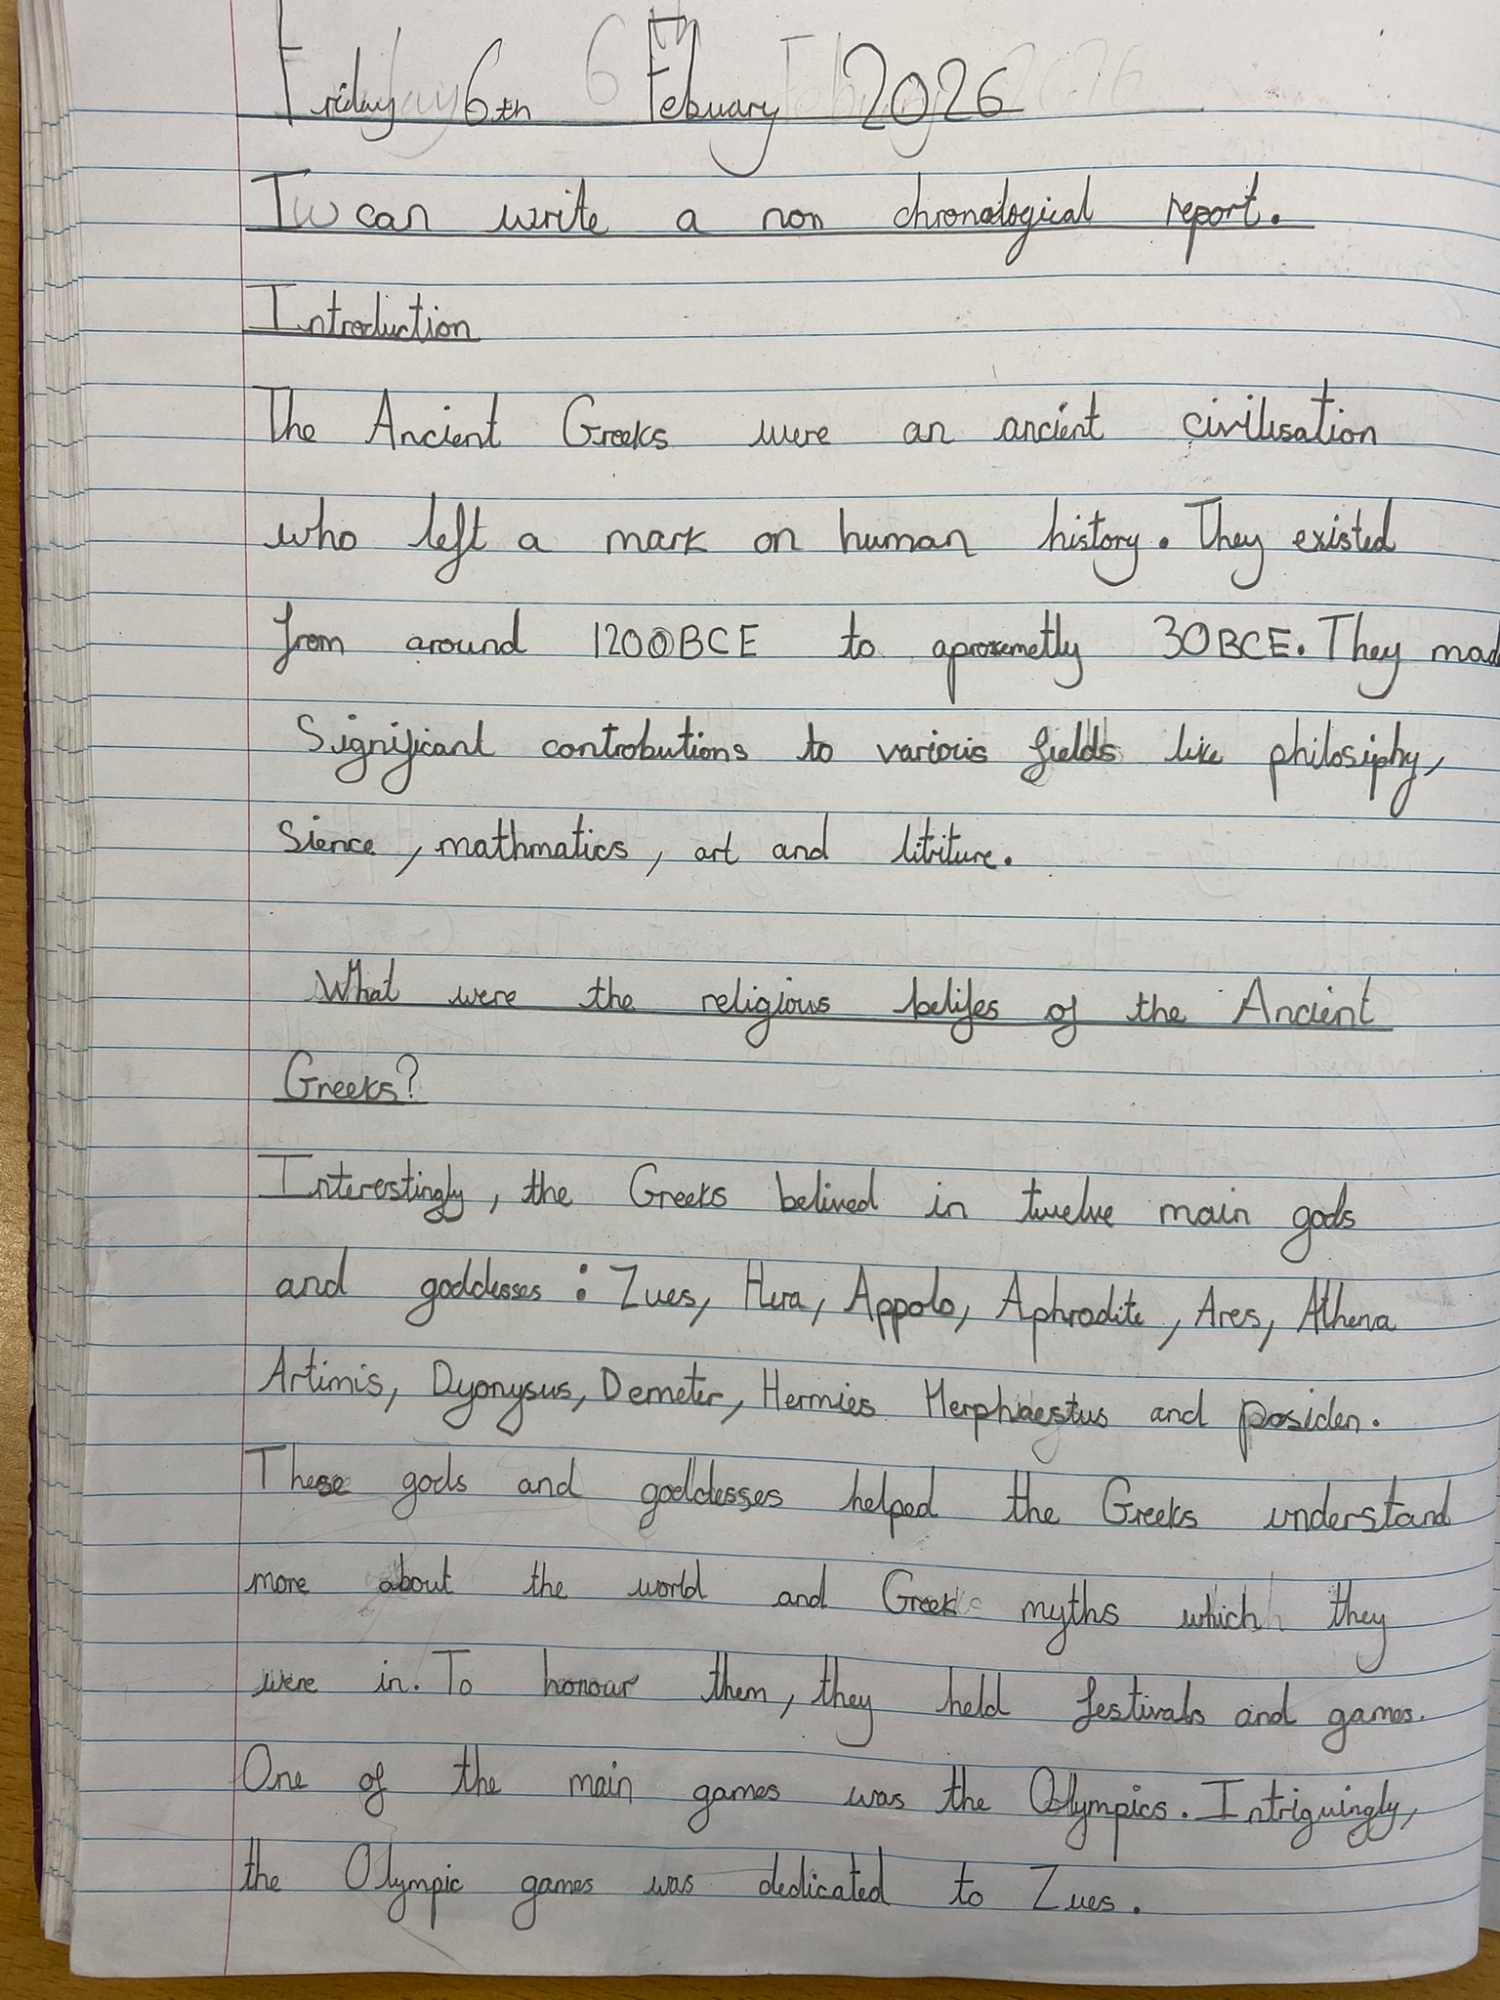 Friday 6th Febuary 2026
I can write a non chronological report.
Introduction
The Ancient Greeks were an ancient civilisation
who left a mark on human history. They existed
from around 1200BCE to aproxemetly 30BCE. They mad
Significant controbutions to various fields like philosiphy,
Sience, mathmatics, art and lititure.
What were the religious belifes of the Ancient
Greeks?
Interestingly, the Greeks belived in twelve main gods
and goddesses: Zues, Hera, Appolo, Aphrodite, Ares, Athena
Artimis, Dyonysus, Demeter, Hermies Herphaestus and posiden.
These gods and goddesses helped the Greeks understand
more about the world and Greek myths which they
were in. To honour them, they held festivals and games.
One of the main games was the Olympics. Intriguingly,
the Olympic games was dedicated to Zues.